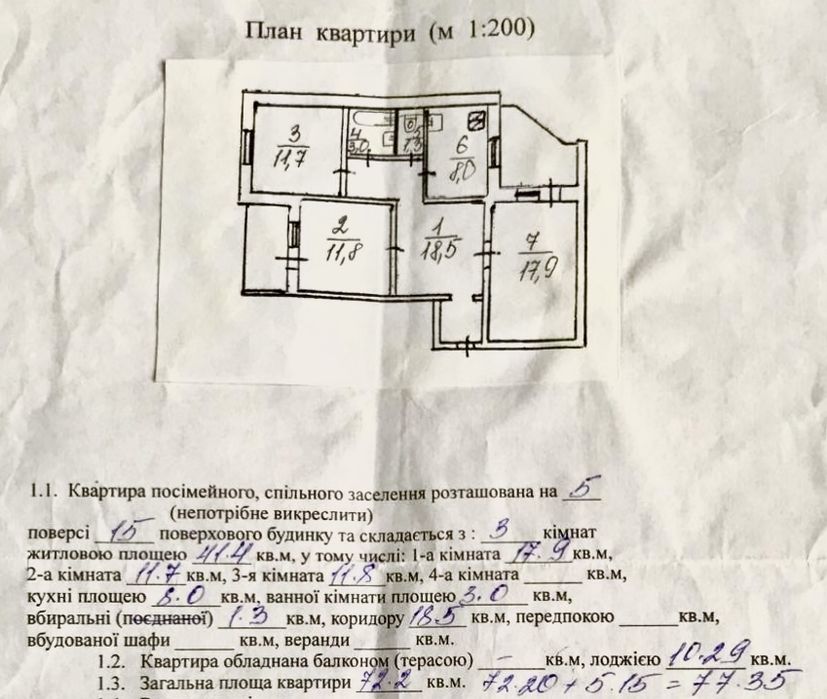 План квартири (м 1:200)
3
11,7
4
3,0
5
1,3
6
8,0
2
11,8
1
18,5
7
17,9
1.1. Квартира посімейного, спільного заселення розташована на 5
(непотрібне викреслити)
поверсі 15 поверхового будинку та складається з : 3 кімнат
житловою площею 41.4 кв.м, у тому числі: 1-а кімната 17.9 кв.м,
2-а кімната 11.7 кв.м, 3-я кімната 11.8 кв.м, 4-а кімната ______ кв.м,
кухні площею 8.0 кв.м, ванної кімнати площею 3.0 кв.м,
вбиральні (поєднаної) 1.3 кв.м, коридору 18.5 кв.м, передпокою ______ кв.м,
вбудованої шафи ______ кв.м, веранди ______ кв.м.
1.2. Квартира обладнана балконом (терасою) – кв.м, лоджією 10.29 кв.м.
1.3. Загальна площа квартири 72.2 кв.м. 72.20 + 5.15 = 77.35